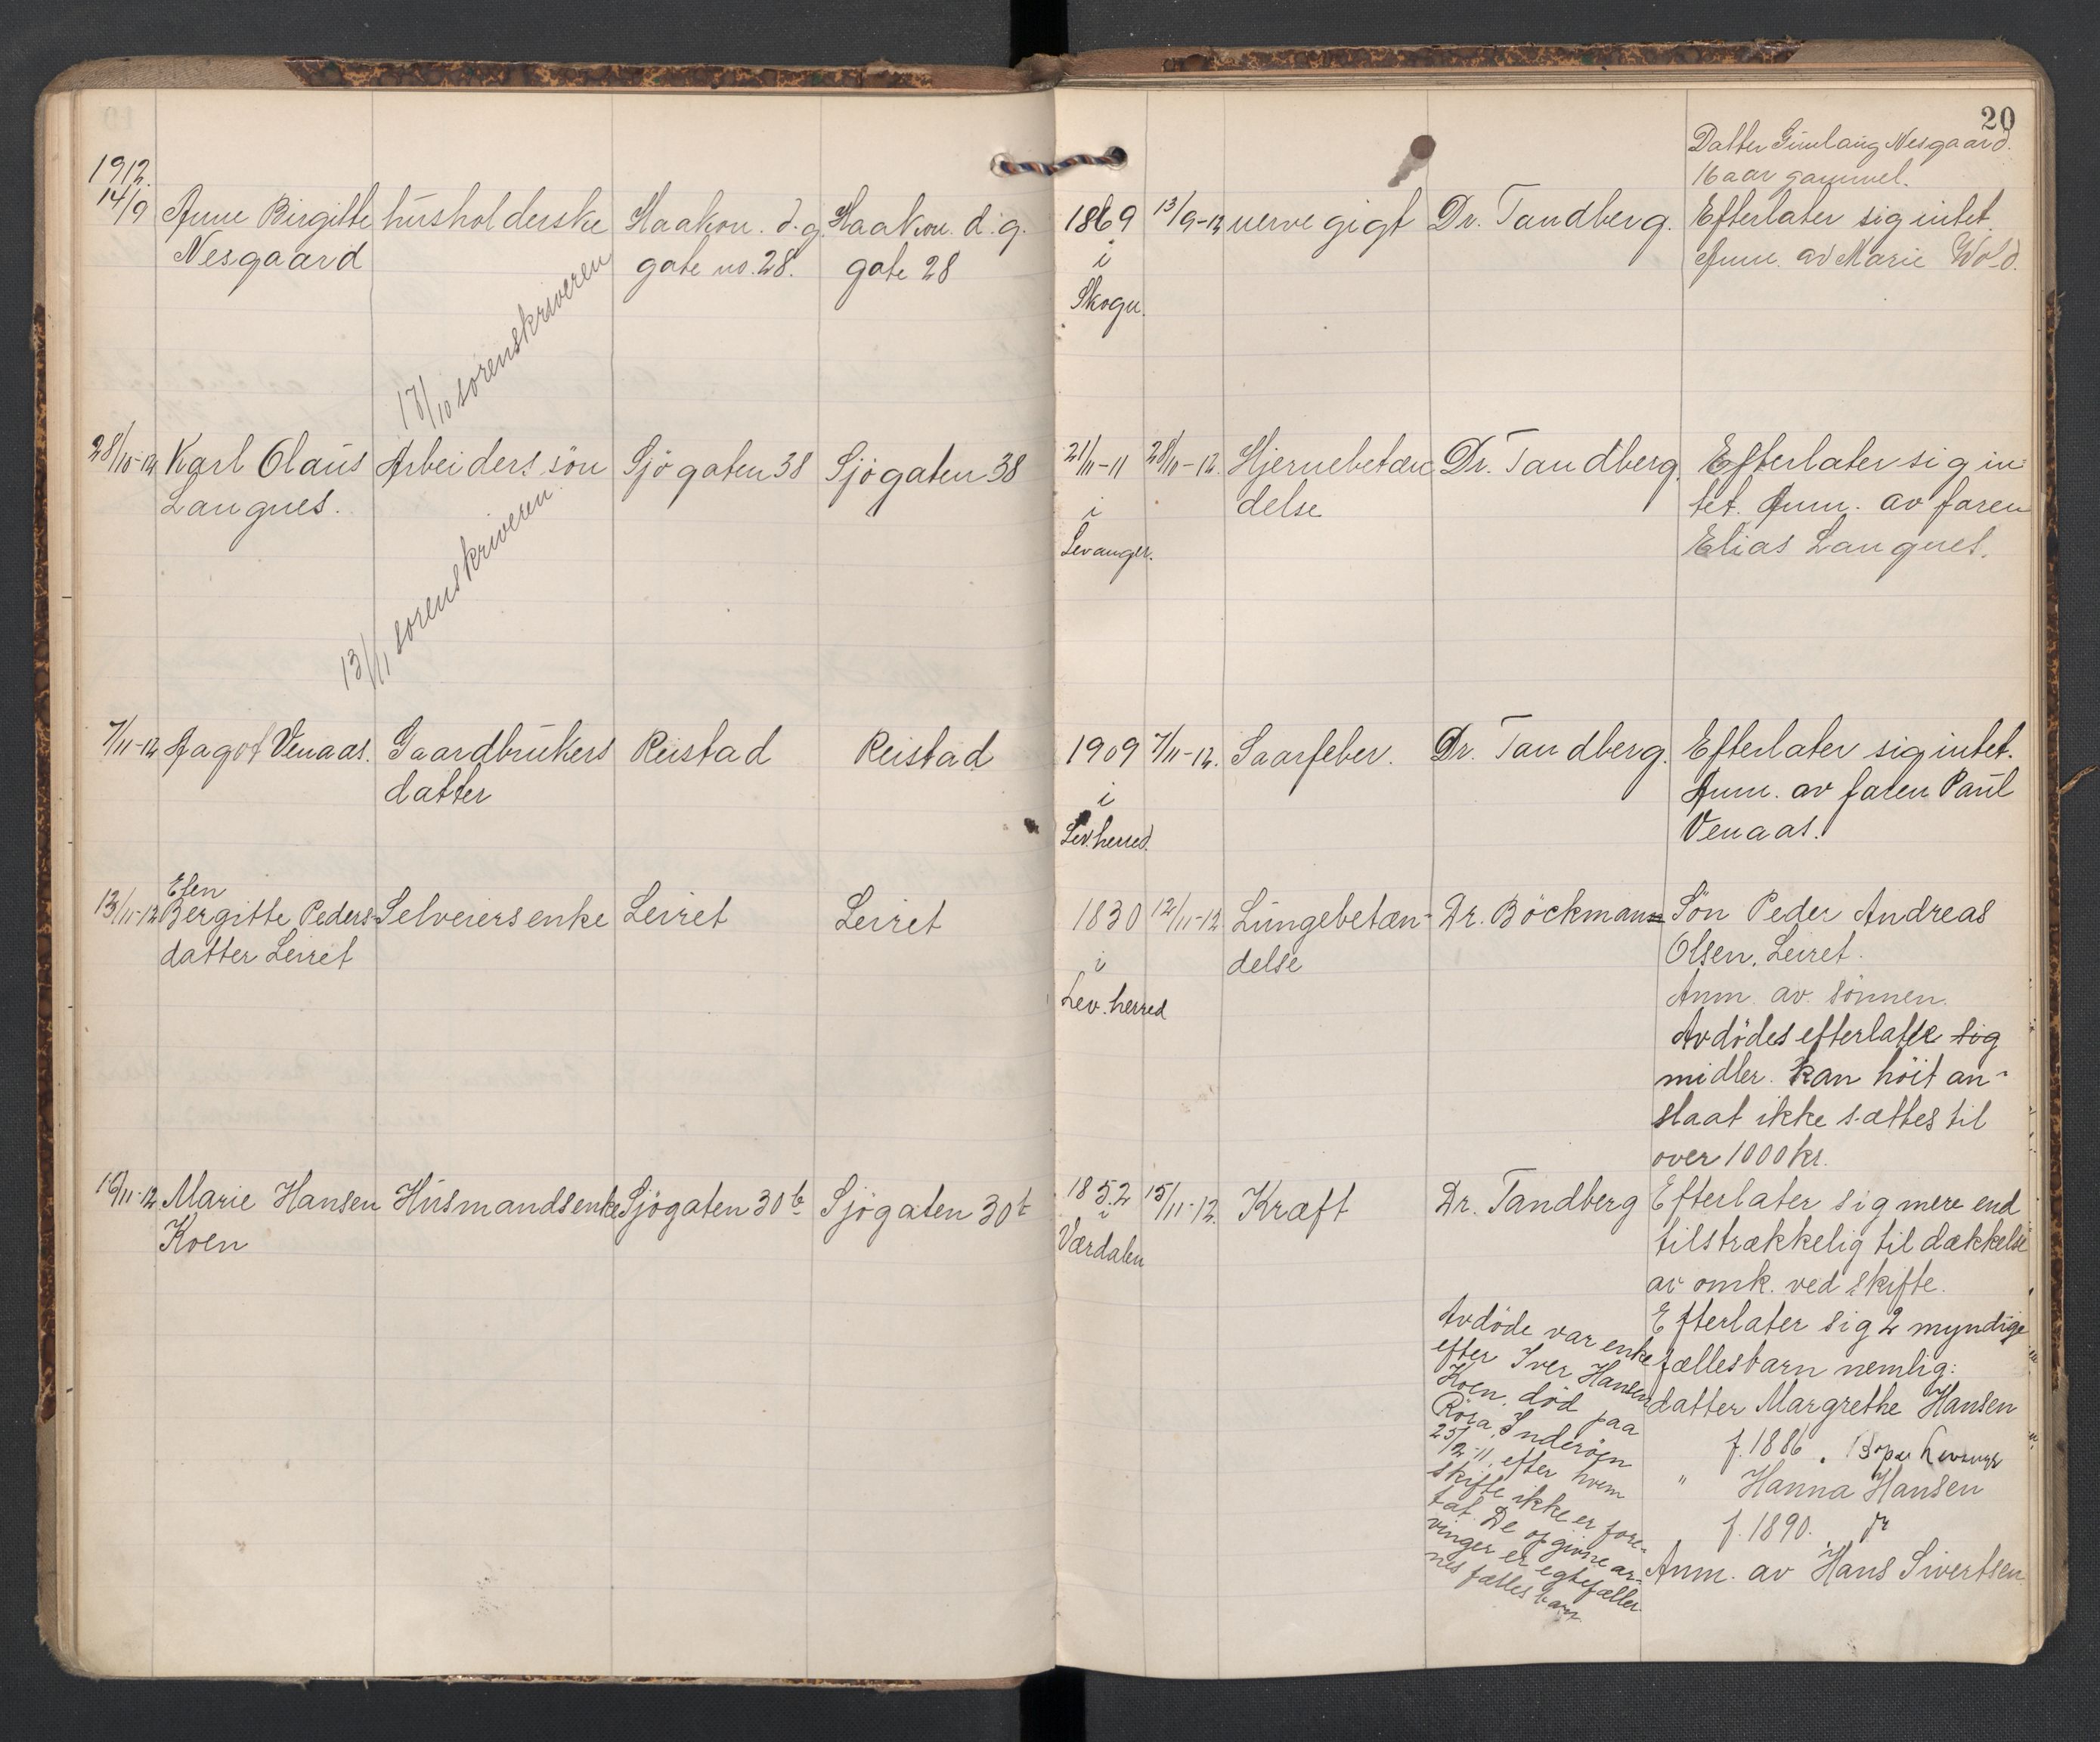 20
1912.
Datter Gunlaug Nesgaard.
16 aar gammel.
14/9 Anne Birgitte husholderske Haakon. d. g. Haakon d. g. 1869 13/9-12 nervegigt Dr. Tandberg. Efterlater sig intet.
Nesgaard gate no. 28. gate 28 i Anm. av Marie Wold.
Skogn.
17/10 sorenskriveren
28/10-12 Karl Olaus Arbeiders sön Sjögaten 38 Sjögaten 38 21/11-11 28/10-12. Hjernebetæn Dr. Tandberg. Efterlater sig in-
Langnes. i delse tet. Anm. av faren
Levanger. Elias Langnes.
13/11 sorenskriveren
7/11-12 Aagot Venaas. Gaardbrukers Reistad Reistad 1909 7/11-12. Saarfeber. Dr. Tandberg. Efterlater sig intet.
datter i Anm. av faren Paul
Lev. herred. Venaas.
Elen
13/11-12 Bergitte Peders- Selveiersenke Leiret Leiret 1830 12/11-12. Lungebetæn- Dr. Böckmann Sön Peder Andreas
datter Leiret i delse Olsen, Leiret.
Lev. herred Anm. av sönnen.
Avdödes efterlatte sig
midler. kan höit an-
slaat ikke sættes til
over 1000 kr.
16/11-12 Marie Hansen Husmandsenke Sjögaten 30b Sjögaten 30b 1852 15/11-12. Kræft Dr. Tandberg Efterlater sig mere end
Koen i tilstrækkelig til dækkelse
Værdalen av omk. ved skifte.
Efterlater sig 2 myndige
fællesbarn nemlig:
datter Margrethe Hansen
f. 1886. Levanger
" Hanna Hansen
f. 1890.
Anm. av Hans Sivertsen
Avdöde var enke
efter Iver Hansen
Koen, död paa
Röra, Inderöen
25/2-11, efter hvem
skifte ikke er fore-
tat. De opgivne ar-
vinger er egtefælle-
nes fælles barn